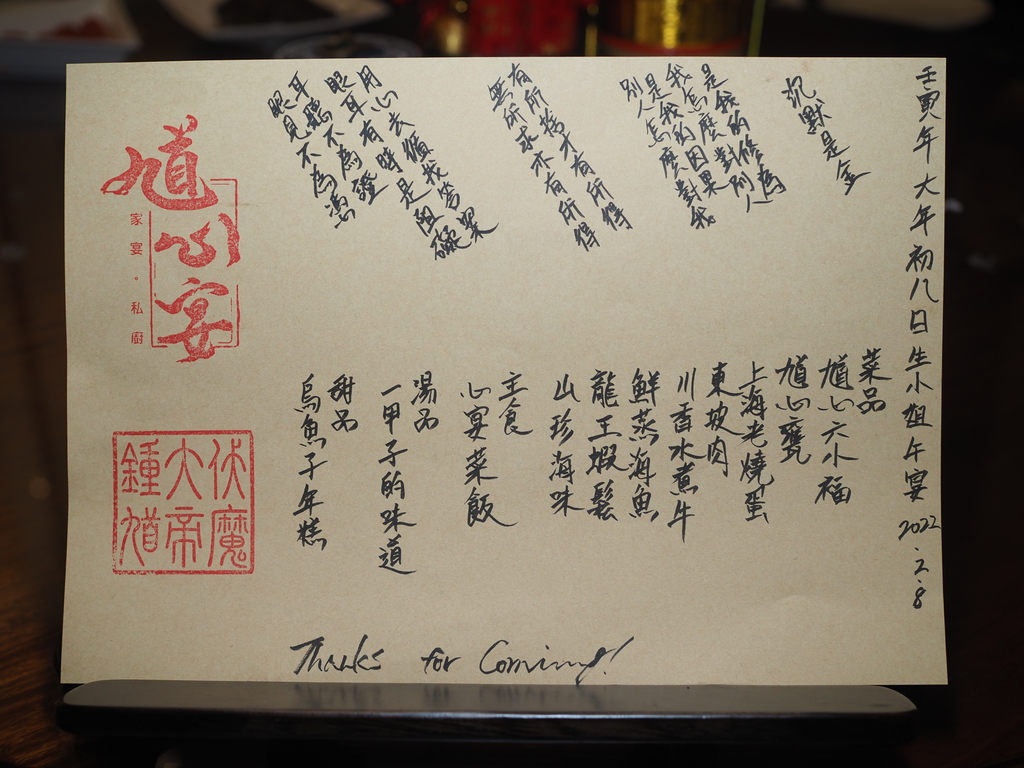 壬寅年大年初八日生小姐午宴 2022.2.8
沉默是金
是我的修為
我怎麼對別人
是我的因果
別人怎麼對我
有所捨才有所得
無所求亦有所得
用心去循找答案
眼耳有時是阻礙
耳聽不為證
眼見不為憑
菜品
馗心六小福
馗心甕
上海老燒蛋
東坡肉
川香水煮牛
鮮蒸海魚
龍王蝦鬆
山珍海味
主食
心宴菜飯
湯品
一甲子的味道
甜品
烏魚子年糕
馗心宴
家宴。私廚
伏魔
大帝
鍾馗
Thanks for Coming!